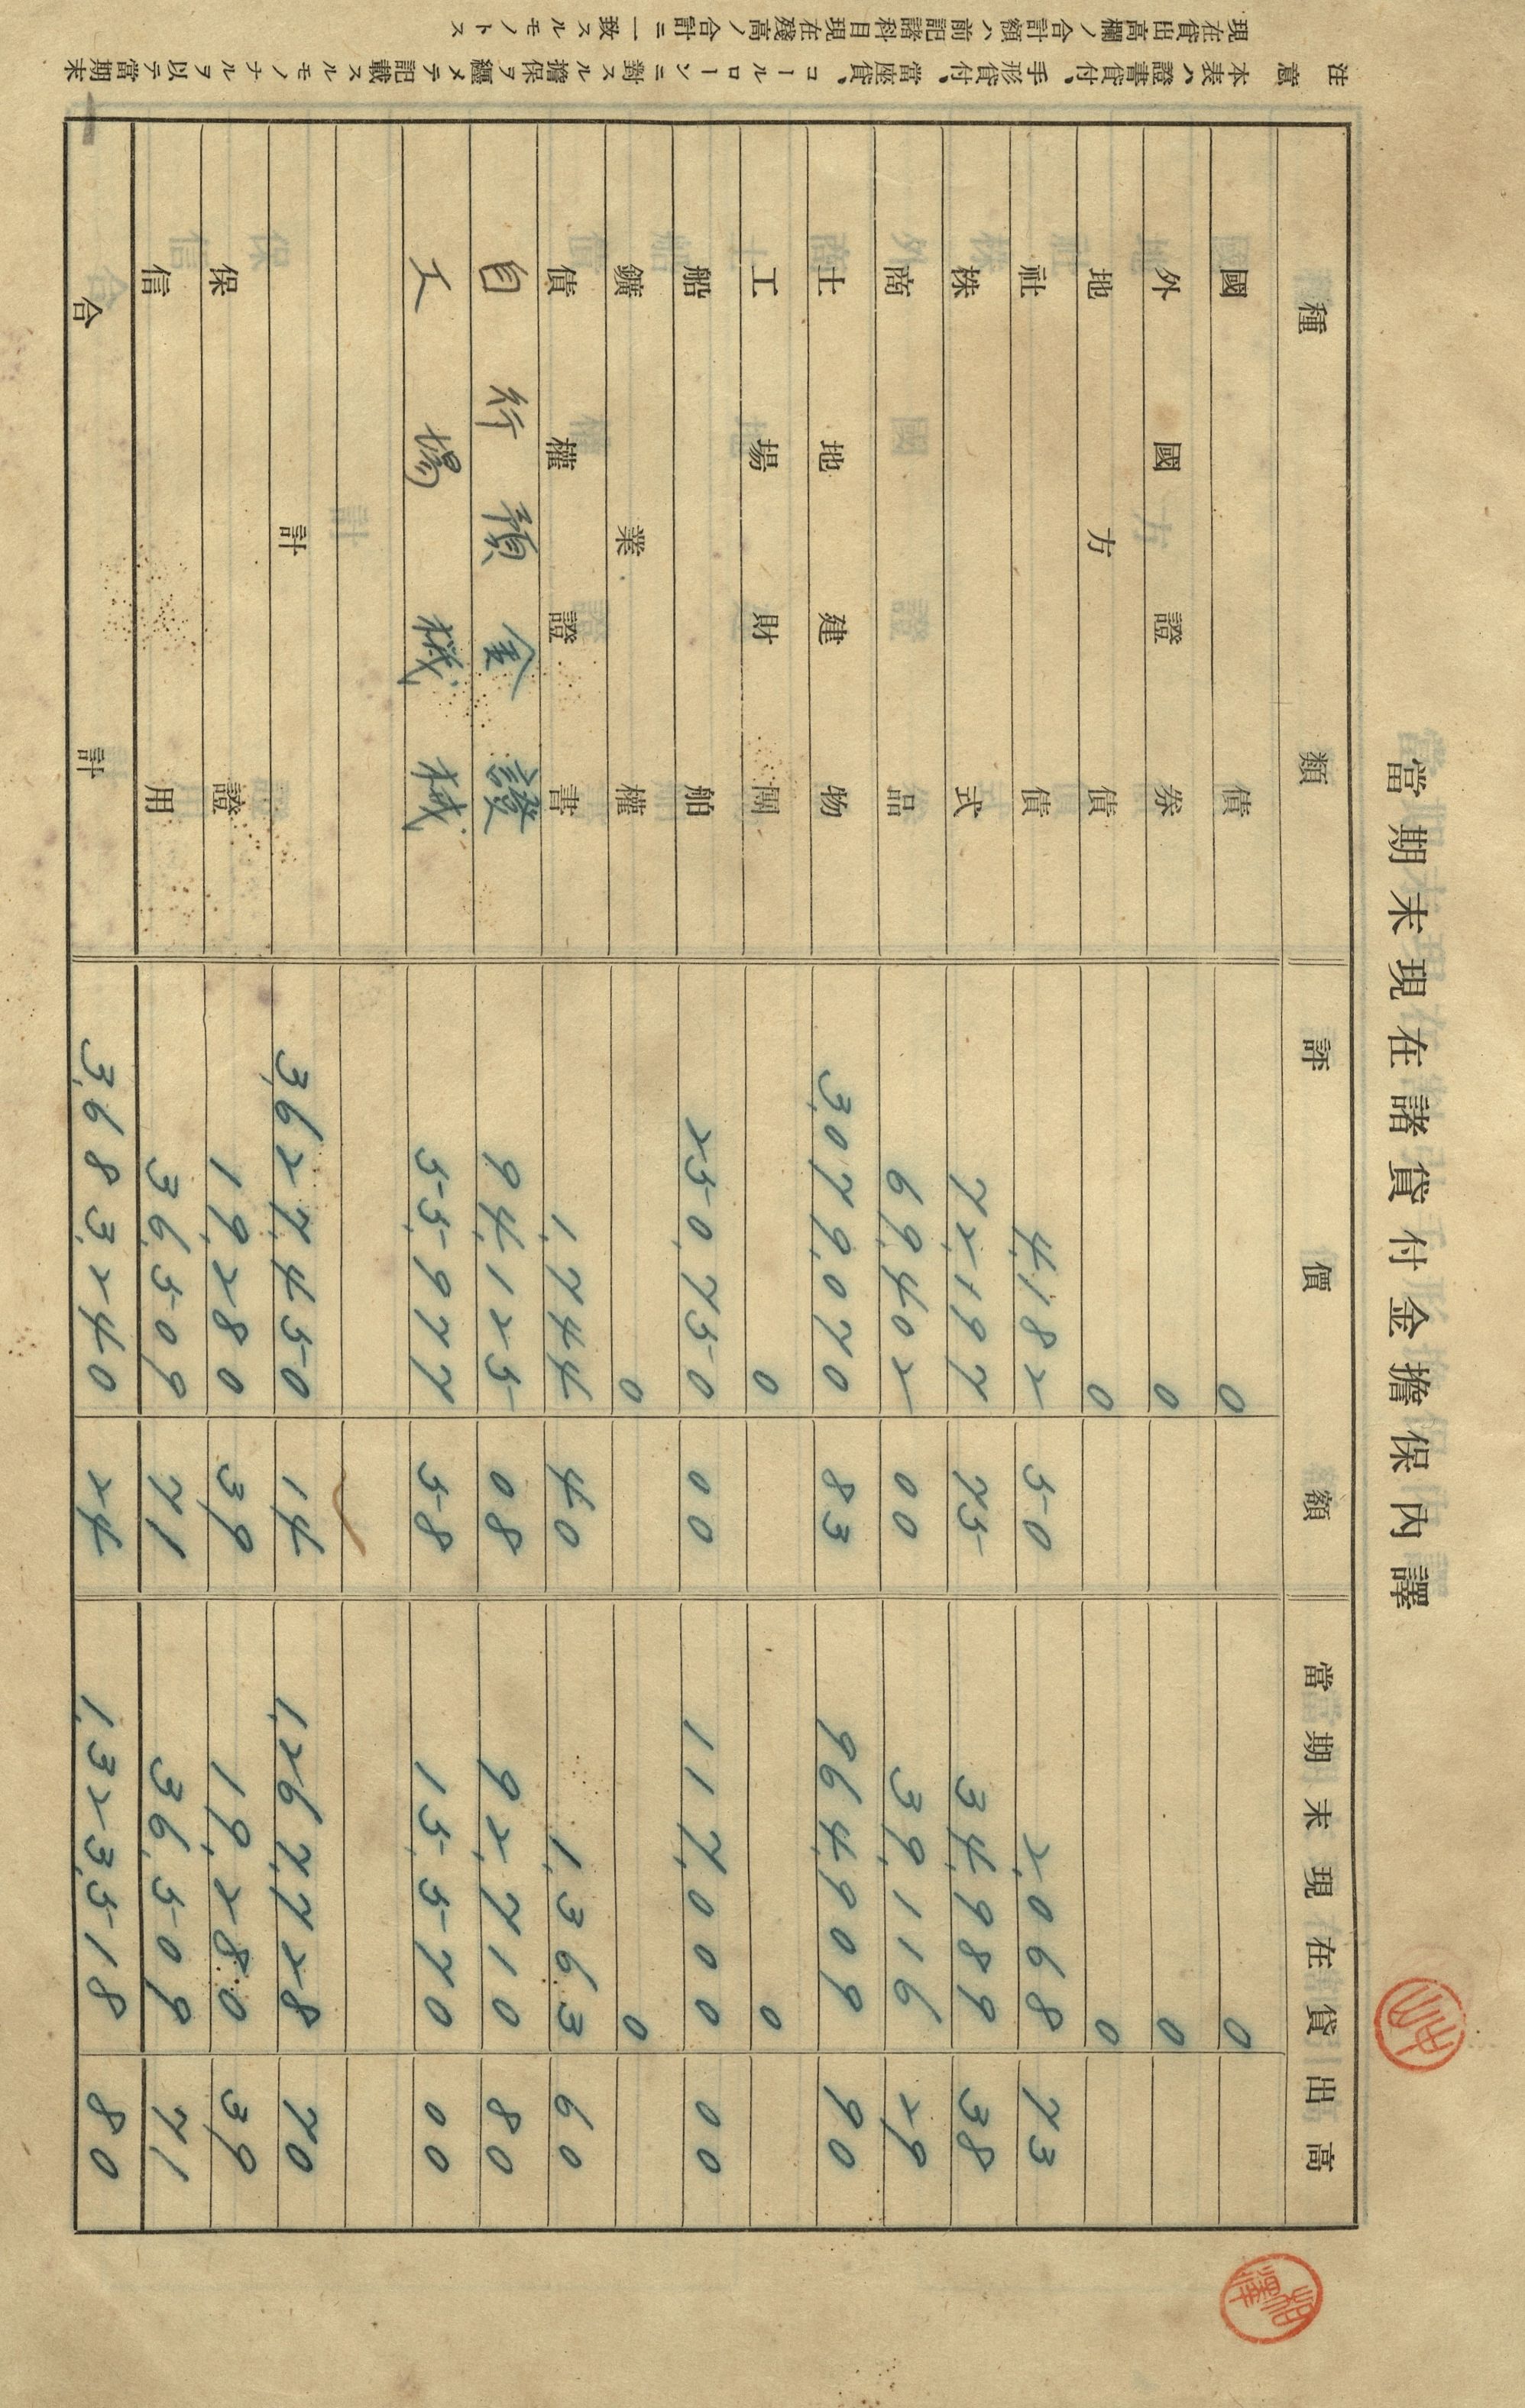 當期末現在諸貸付金擔保內譯
種類 評價額 當期末現在貸出高
國債 0 0
外國證券 0 0
地方債 0 0
社債 4,182 50 2,068 73
株式 72,197 75 34,989 38
商品 69,402 00 39,116 29
土地建物 3,079,070 83 964,909 90
工場財團 0 0
船舶 250,750 00 117,000 00
鑛業權 0 0
債權證書 1,744 40 1,363 60
自行預金證 94,125 08 92,710 80
工場機械 55,977 58 15,570 00
計 3,627,450 14 1,267,728 70
保證 19,280 39 19,280 39
信用 36,509 71 36,509 71
合計 3,683,240 24 1,323,518 80
注意 本表ハ證書貸付、手形貸付、當座貸、コールローンニ對スル擔保ヲ纒メテ記載スルモノナルヲ以テ當期末
現在貸出高欄ノ合計額ハ前記諸科目現在殘高ノ合計ニ一致スルモノトス